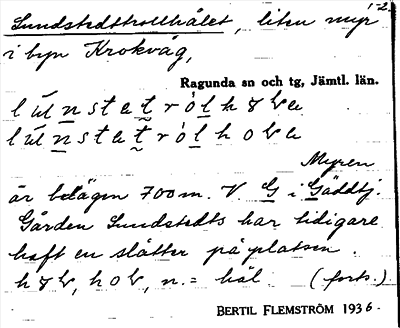 Lundstedttrollhålet, liten myr 1-2.
i byn Krokvåg,
Ragunda sn och tg, Jämtl. län.
Myren
är belägen 700 m. V G i Gäddtj.
Gården Lundstedts har tidigare
haft en slåtter på platsen.
n. = hål (forts.)
BERTIL FLEMSTRÖM 1936.